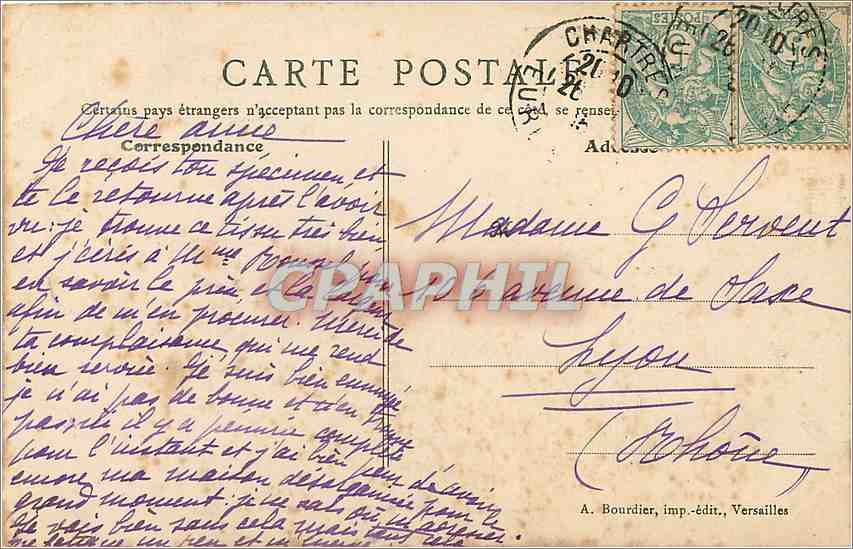 CARTE POSTALE
Certains pays étrangers n'acceptant pas la correspondance de ce côté, se rensei
Correspondance
Adresse
CHARTRES
EURE
20 10
26
POSTES
Chère amie
Je reçois ton spécimen, et
te le retourne après l'avoir
vu: je trouve ce tissu très bien
et j'écris à Mme
en savoir le prix, et
afin de m'en procurer. Merci de
ta complaisance, qui me rend
bien service. Je suis bien ennuyée
je n'ai pas de bonne et n'en trouve
pas, il y a pénurie complète
pour l'instant et j'ai bien peur d'avoir
encore ma maison désorganisée pour un
grand moment: je ne sais où m'adresser.
Je vais bien sans cela mais tout cela
me fatigue un peu et
Madame G Servent
106 avenue de Saxe
Lyon
(Rhône)
A. Bourdier, imp.-édit., Versailles
CPAPHIL